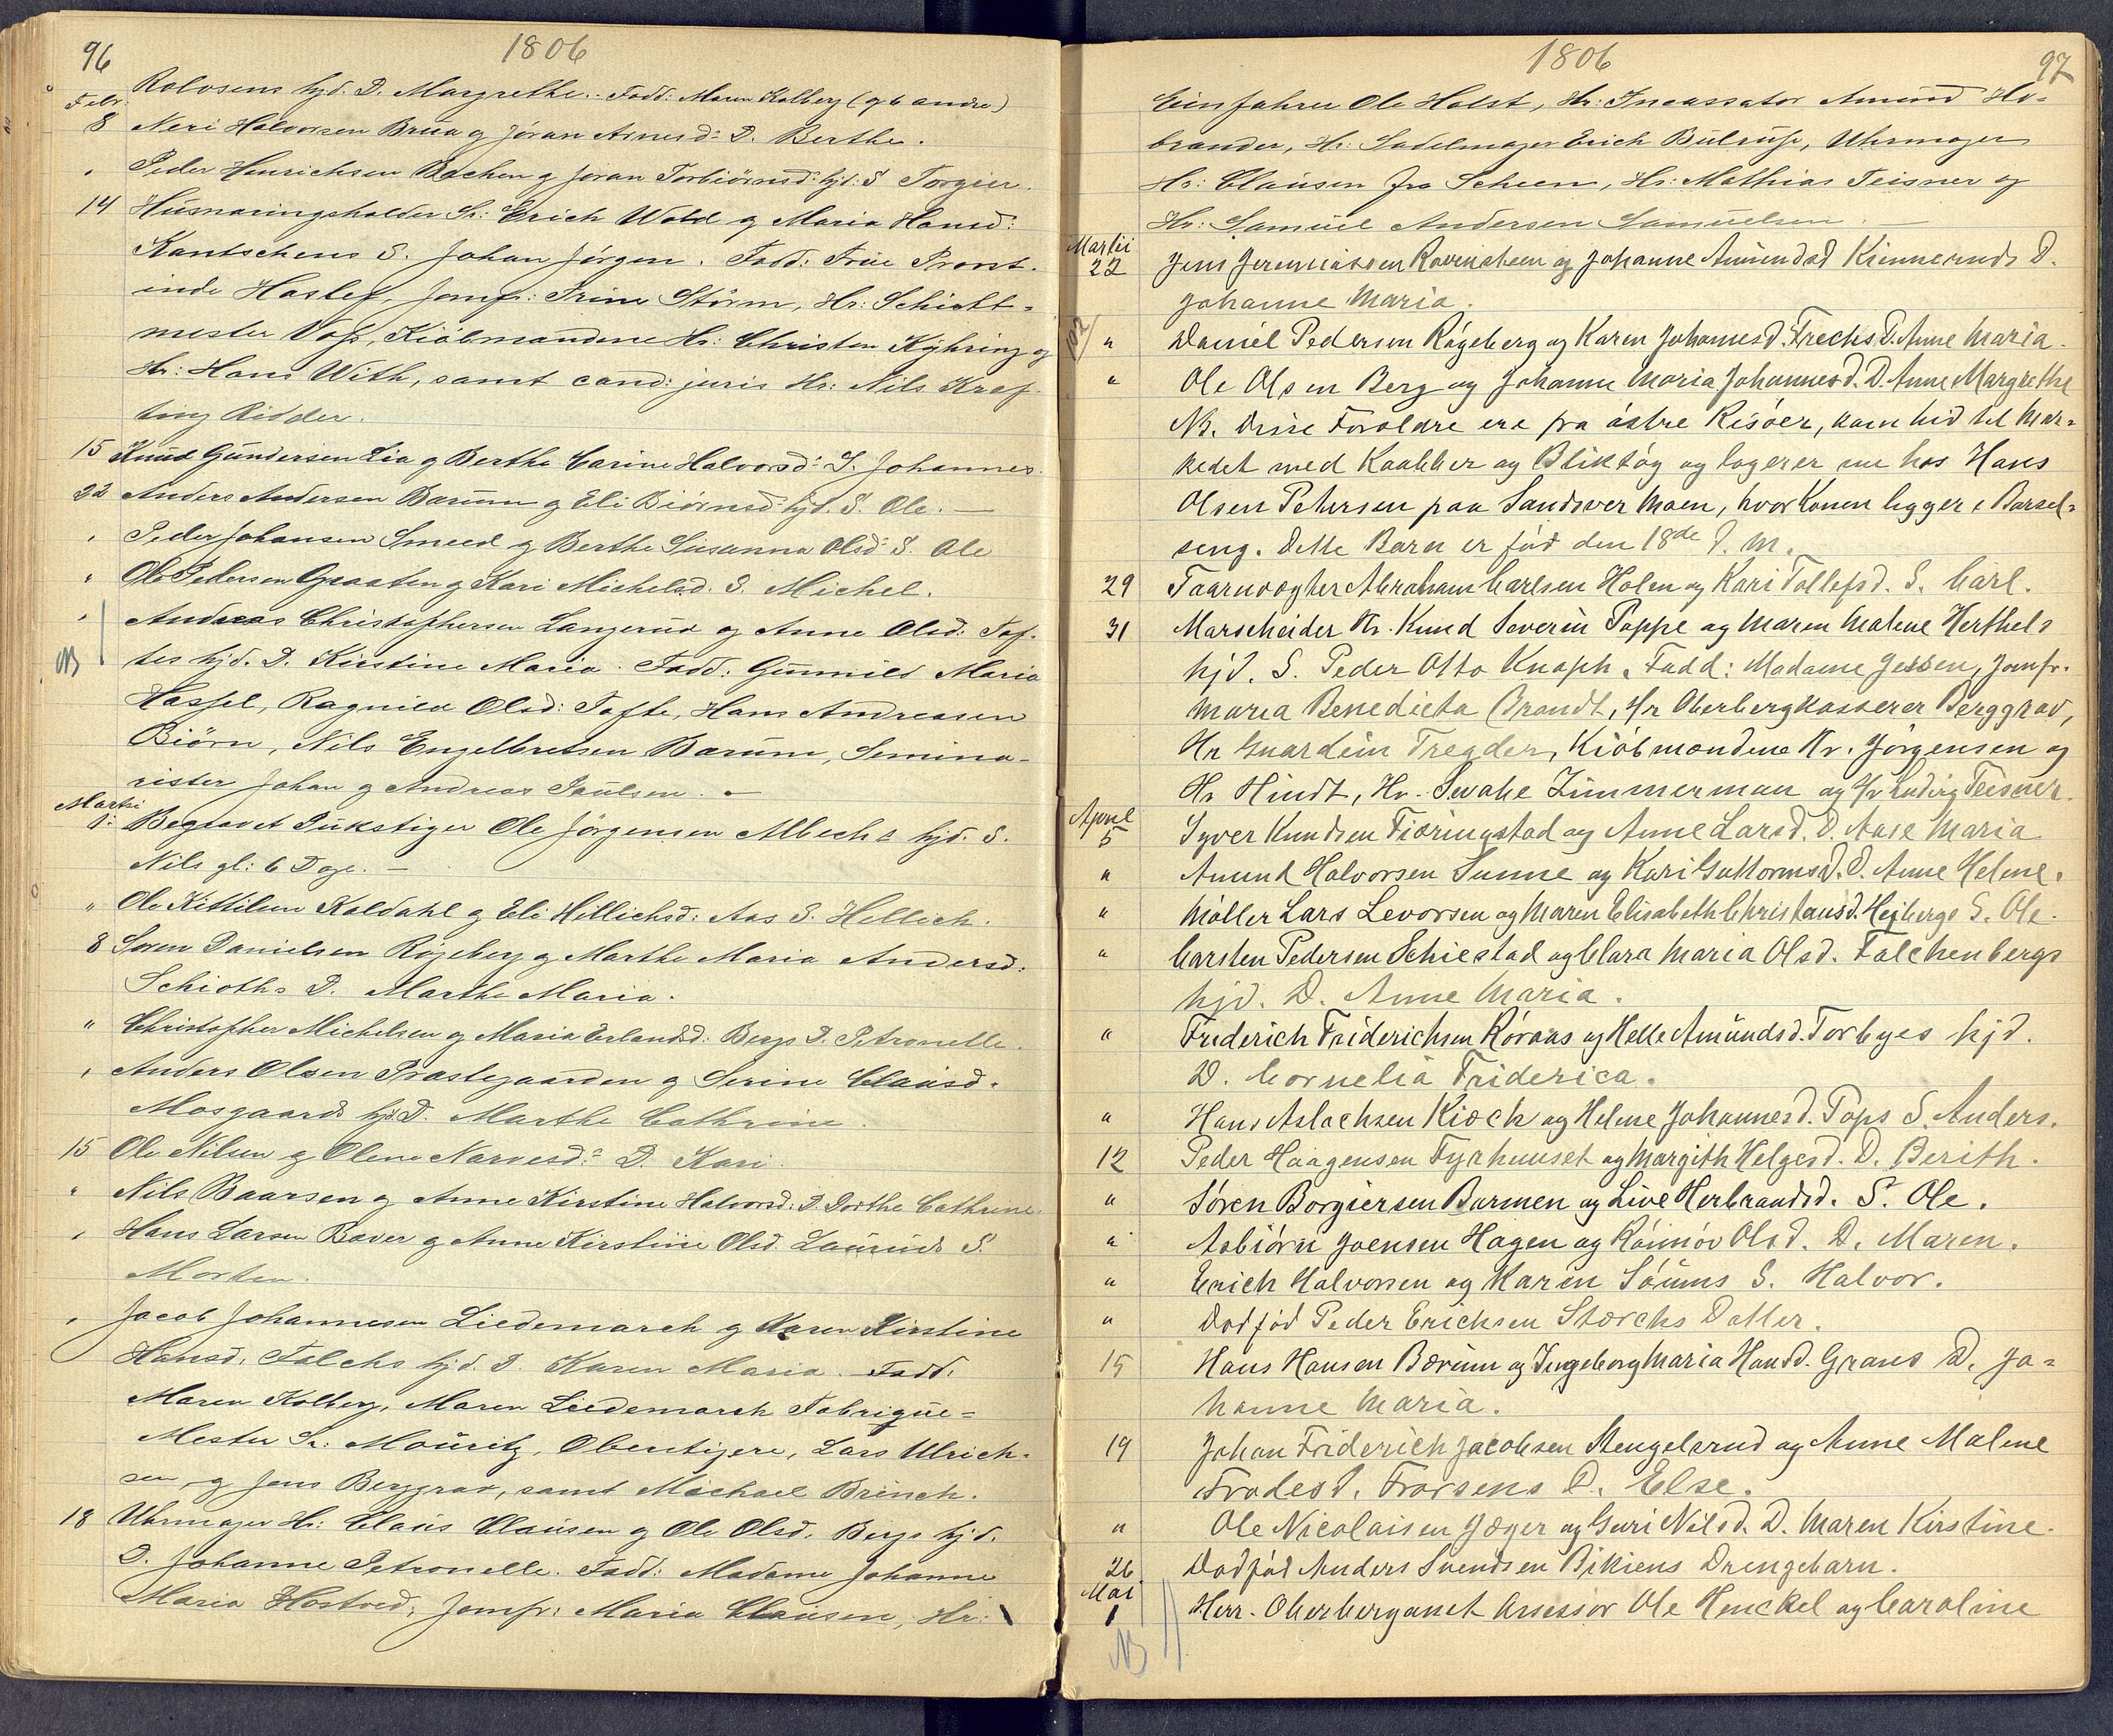 96
1806
Rolvsens hjd. D. Margrethe. Fadd: Maren Kolberg (g 6 andre)
Febr:
8 Neri Halvorsen Brua g Jöran Arnesd: D. Berthe.
, Peder Henrichsen Bachen g Jöran Torbiörnsd: hjd: S Torgier.
14 Husnæringsholder Sr: Erich Wold g Maria Hansd:
Kantschens S. Johan Jörgen. Fadd: Frue Provst-
inde Haslef, Jomfr: Trine Störm, Hr: Schicht-
mester Voss, Kiöbmændene Hr: Christen Kyhring og
Hr: Hans With, samt cand: juris Hr: Nils Kraf-
ting Ridder.
15 Knud Gundersen Lia g Berthe Carine Halvorsd: S. Johannes.
22 Anders Andersen Bærum g Eli Biörnsd: hjd. S. Ole. —
, Peder Johansen Smeed g Berthe Susanna Olsd: S. Ole
" Ole Pedersen Graaten g Kari Michelsd. S. Michel.
" Andreas Christophersen Langerud og Anne Olsd: Tof-
NB tes hjd. D. Kirstine Maria. Fadd: Gunnild Maria
Hassel, Ragnild Olsd: Tofte, Hans Andreasen
Biörn, Nils Engelbretsen Bærum, Semina-
rister Johan g Andreas Paulsen. —
Martii
1: Begravet Pukstiger Ole Jörgensen Albechs hjd. S.
Nils gl: 6 Dage. —
" Ole Kittilsen Koldahl g Eli Hellichsd: Aas S. Hellech.
8 Soren Danielsen Rögeberg g Marthe Maria Andersd:
Schioths D. Marthe Maria.
" Christopher Michelsen g Maria Erlandsd: Bergs D. Petronelle.
, Anders Olsen Præstegaarden g Serine Clausd.
Mosgaards hjd. D. Marthe Cathrine.
15 Ole Nilsen g Olene Narvesd: D. Kari.
" Nils Baarsen g Anne Kirstine Halvorsd: D. Dorthe Cathrine.
, Hans Larsen Baver g Anne Kirstine Olsd. Lauruds S.
Morten.
, Jacob Johannesen Liedemarch g Karen Kirstine
Hansd. Falchs hjd. D. Karen Maria. Fadd.
Maren Kolberg, Maren Liedemarch Fabrique=
Mester Sr: Mouritz, Oberstigere, Lars Ulrich-
sen g Jens Berggrav, samt Michael Brinch.
18 Uhrmager Hr: Claus Clausen g Ole Olsd. Bergs hjd.
D. Johanne Petronelle. Fadd: Madame Johanne
Maria Hostved, Jomfr: Maria Clausen, Hr:
1806
97
Einfahrer Ole Holst, Hr: Incassator Amund Ho-
brander, Hr: Sadelmager Erich Bulruss, Uhrmager
Hr: Clausen fra Scheen, Hr: Mathias Teisner og
Hr: Samuel Andersen Samuelsen. —
Martii
22 Jens Jeremiassen Ravensheen og Johanne Amundsd Kinneruds D.
Johanne Maria.
" Daniel Pedersen Rögeberg og Karen Johannesd. Frechs D. Anne Maria.
" Ole Olsen Berg og Johanne Maria Johannesd. D. Anne Margrethe
NB. Disse Forældre ere fra östre Risöer, kam hid til Mar-
kedet med Kaabber og Bliktög og logerer nu hos Hans
Olsen Petersen paa Sandsver Moen, hvor Konen ligger i Barsel-
seng. Dette Barn er fød den 18de d. M.
29 Taarnvogter Abraham Carlsen Holen og Kari Tollefsd. S. Carl.
31 Marscheider Hr. Knud Severin Poppe og Maren Malene Herthels
hjd. S. Peder Otto Knoph. Fadd: Madame Jessen, Jomfr.
Maria Benedicta Brandt, Hr Oberbergkasserer Berggrav,
Hr Guardein Tregder, Kiöbmændene Hr. Jörgensen og
Hr Hindt, Hr. Swahe Zimmerman og Hr Ludvig Teisner.
April
5 Syver Knudsen Fiæringstad og Anne Larsd. D. Aase Maria
" Amund Halvorsen Sunne og Kari Guttormsd. D. Anne Helene.
" Møller Lars Levorsen og Maren Elisabeth Christensd. Hejbergs S. Ole.
" Carsten Pedersen Schiestad og Clara Maria Olsd. Falchenbergs
hjd. D. Anne Maria.
" Friderich Friderichsen Röraas og Helle Amundsd. Torbyes hjd.
D. Cornelia Friderica.
" Hans Aslachsen Kiøck og Helene Johannesd. Pops S. Anders.
12 Peder Haagensen Fyrhuuset og Margith Helgesd. D. Berith.
" Søren Borgiersen Barmen og Live Herbrandsd. S. Ole.
" Asbiörn Joensen Hagen og Rönnöv Olsd. D. Maren.
" Erich Halvorsen og Karen Söums S. Halvor.
" Dødfød Peder Erichsen Størchs Datter.
15 Hans Hansen Bærum og Ingeborg Maria Hansd. Grans D. Jo=
hanne Maria.
19 Johan Friderich Jacobsen Stengelsrud og Anne Malene
Frodesd. Frorsens D. Else.
" Ole Nicolaisen Jæger og Guri Nilsd. D. Maren Kirstine.
26 Dødfød Anders Svendsen Bikiens Drengebarn.
Mai
1 Herr. Oberbergamt Assessor Ole Henckel og Caroline
NB